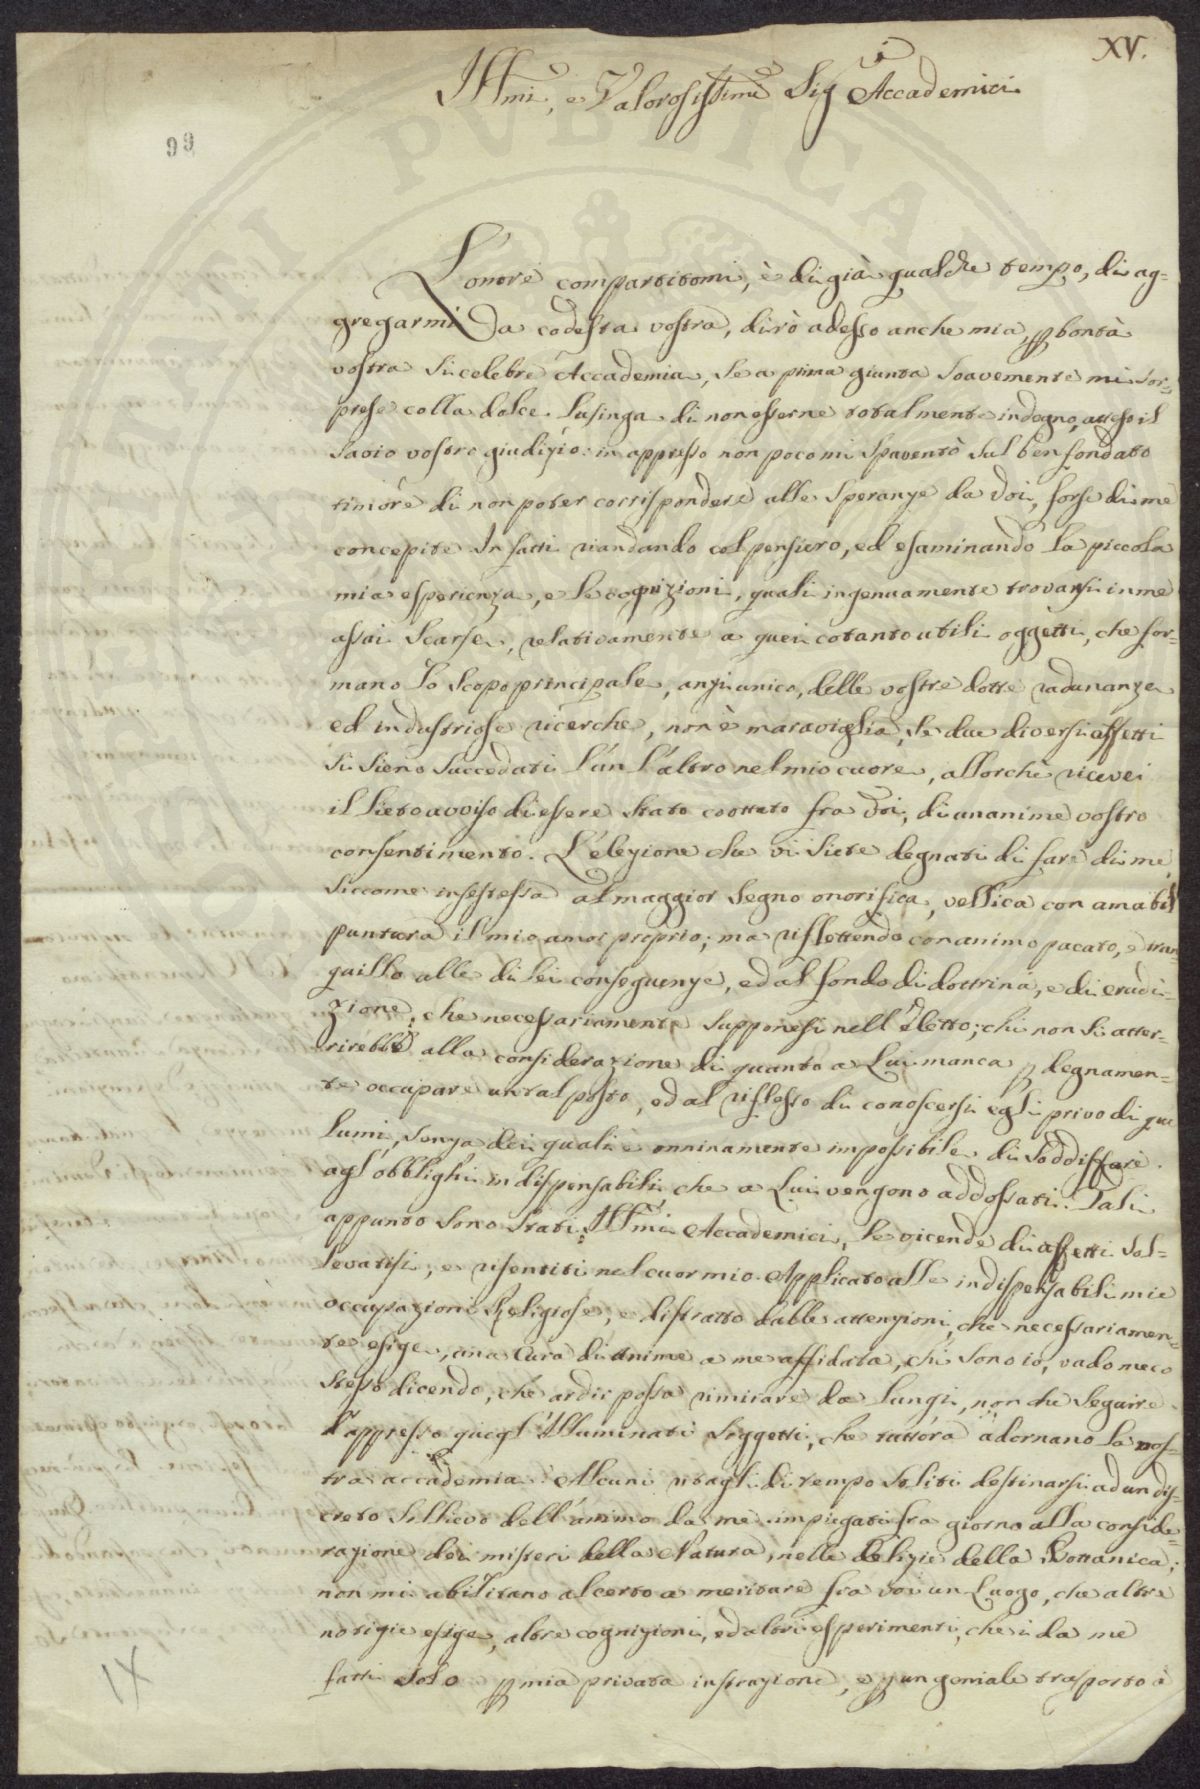 XV.
Illmi, e Valorosissimi Sigi Accademici
99
L'onore compartitomi, è di già qualche tempo, di ag=
gregarmi Da codesta vostra, dirò adesso anche mia, p bontà
vostra sì celebre Accademia, se a prima giunta soavemente mi sor=
prese colla dolce lusinga di non esserne totalmente indegno, atteso il
savio vostro giudizio: in appresso non poco mi spaventò sul ben fondato
timore di non poter corrispondere alle speranze da Voi, forse di me
concepite. In fatti riandando col pensiero, ed esaminando la piccola
mia esperienza, e le cognizioni, quali ingenuamente trovansi in me
assai scarse, relativamente a quei cotanto utili oggetti, che for=
mano lo scopo principale, anzi unico, delle vostre dotte radunanze
ed industriose ricerche, non è maraviglia, se due diversi affetti
si sieno succeduti l'un l'altro nel mio cuore, allorchè ricevei
il lieto avviso di essere stato coottato fra Voi, di unanime vostro
consentimento. L'elezione che vi siete degnati di fare di me,
siccome in se stessa al maggior segno onorifica, vellica con amabil
puntura il mio amor proprio; ma riflettendo con animo pacato, e tran=
quillo alle di lei conseguenze, ed al fondo di dottrina, e di erudi=
zione, che necessariamente supponesi nell'Eletto; chi non si atter=
rirebbe alla considerazione di quanto a Lui manca p degnamen=
te occupare un tal posto, ed al riflesso di conoscersi egli privo di que
lumi, senza dei quali è onninamente impossibile di soddisfare
agl'obblighi indispensabili, che a Lui vengono addossati. Tali
appunto sono stati, Illmi Accademici, le vicende di affetti sol=
levatisi, e risentiti nel cuor mio. Applicato alle indispensabili mie
occupazioni Religiose, e distratto dalle attenzioni, che necessariamen=
te esige, una Cura di Anime a me affidata, chi sono io, vado meco
stesso dicendo, che ardir possa rimirare da lungi, non che seguire
d'appresso quegl'Illuminati Soggetti, che tuttora adornano la vos=
tra accademia? Alcuni ritagli di tempo soliti destinarsi ad un dis=
creto sollievo dell'animo da me impiegati fra giorno alla conside=
razione dei misteri della Natura, nelle delizie della Bottanica;
non mi abilitano al certo a meritare fra voi un Luogo, che altre
notizie esige, altre cognizioni, ed altri esperimenti, che i da me
fatti solo p mia privata instruzione, e p un geniale trasporto a
IX